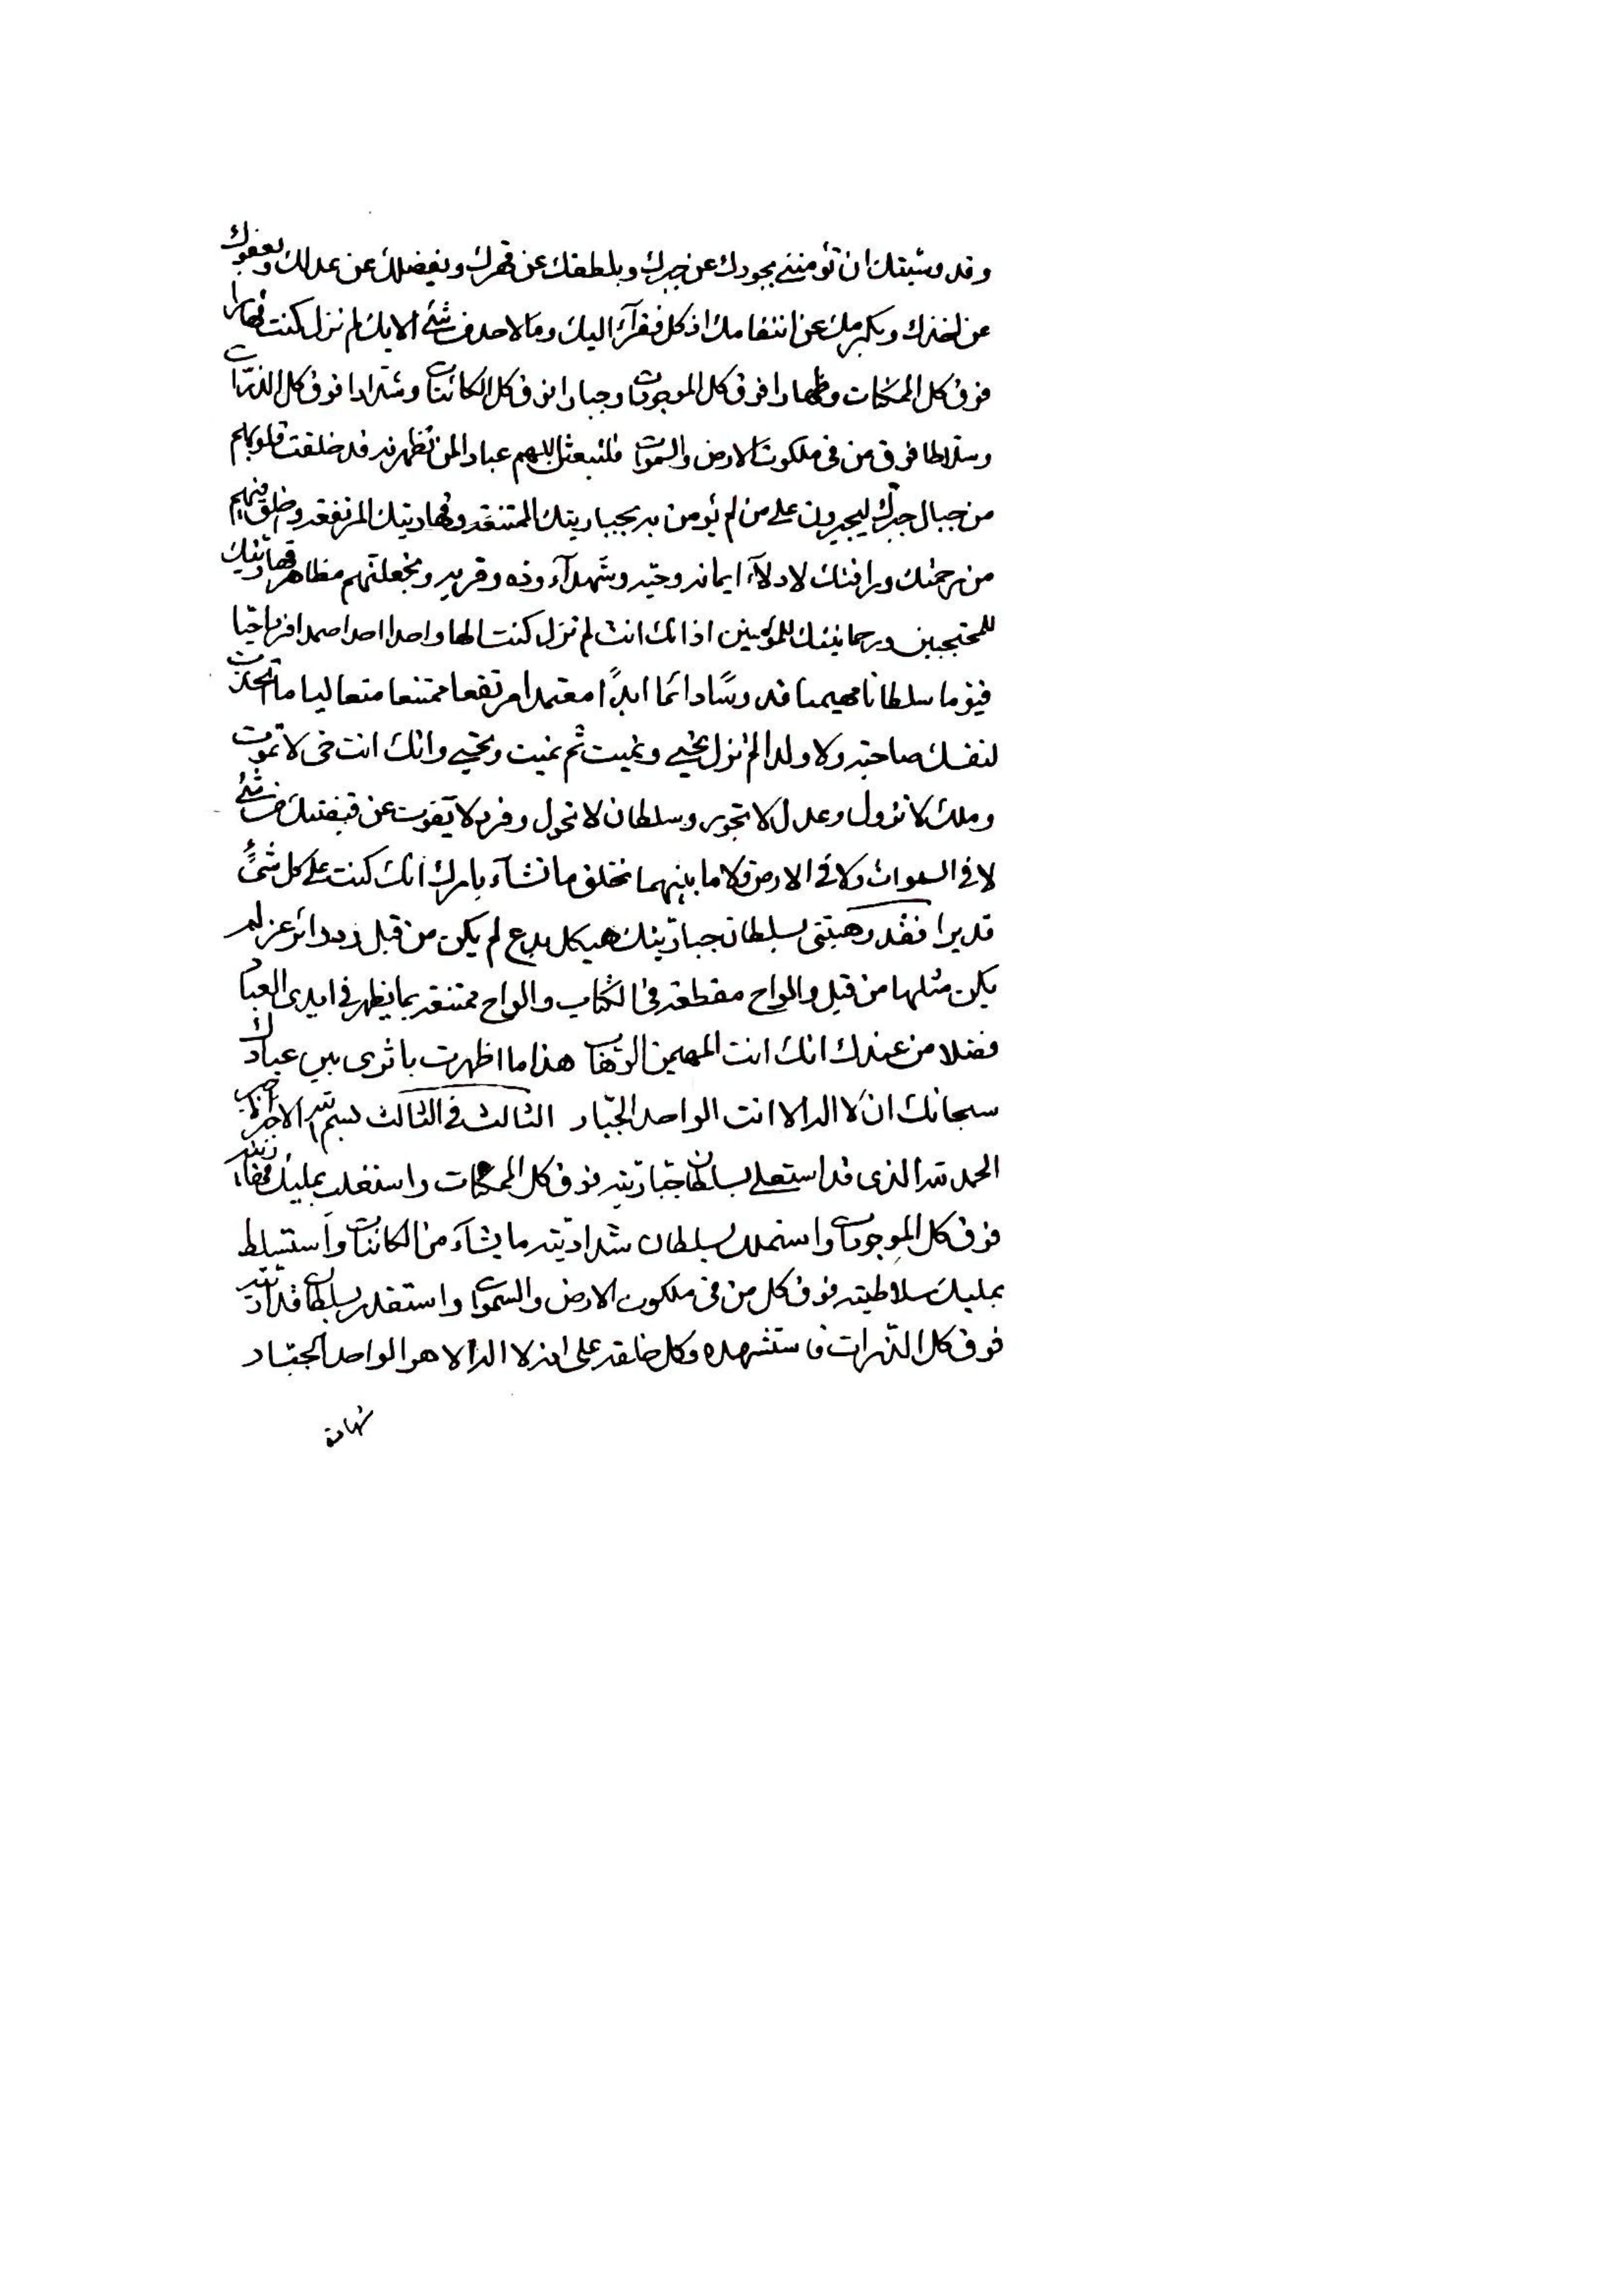 وقدوسيتك ان تؤمننی بجودك عن جبرك وبلطفك عن قهرك وبفضلك عن عدلك وبعفوك
عن اخذك وبكرمك عن انتقامك اذ كل فقرآء اليك وما لاحد من شیء الا بك لم تزل كنت قهارا
فوق كل الممكنات وظهارا فوق كل الموجودات وجبارا فوق كل الكائنات وشدادا فوق كل الذرات
وسلاطا فوق من فی ملكوت الارض والسموات فلتبعثن اللهم عبادا لمن تظهرنه قد خلقت قلوبهم
من جبال جبرك ليجبرون علی من لم يؤمن به بجباريتك الممتنعة وقهاريتك المرتفعة وخلق فيهم
من رحمتك ورافتك لادلاء ايمانه وحبه وشهدآء وده وقربه ونجعلتهم مظاهر قهاريتك
للمحتجبين ورحمانيتك للمؤمنين اذ انك انت لم تزل كنت الها واحدا احدا صمدا فردا حيا
قيوما سلطانا مهيمنا قدوسا دائما ابدا معتمدا مرتفعا ممتنعا متعاليا ما اتخذت
لنفسك صاحبة ولا ولدا لم تزل تحيی وتميت ثم تميت وتحيی وانك انت حی لا تموت
وملك لا تزول وعدل لا تجور وسلطان لا تحول وفرد لا يفوت عن قبضتك من شیء
لا فی السموات ولا فی الارض ولا ما بينهما تخلق ما تشآء بامرك انك كنت علی كل شیء
قديرا فقد وهبتنی بسلطان جباريتك هيكل بدع لم يكن من قبل ودوائر عز لم
يكن مثلها من قبل والواح مقطعة فی الكتاب والواح ممتنعة بما يظهر فی ايدی العباد
فضلا من عندك انك انت المهيمن الوهاب هذا ما اظهرت باثری بين عبادك
سبحانك ان لا اله الا انت الواحد الجبار الثالث فی الثالث بسم الله الاجبر الاجبر
الحمد لله الذی قد استعلی بسلطان جباريته فوق كل الممكنات واستغلب بمليك
فوق كل الموجودات واستملك بسلطان شداديته ما يشآء من الكائنات واستسلط
بمليك سلاطيته فوق كل من فی ملكوت الارض والسموات واستقدر بسلطان قداريته
فوق كل الذرات فاستشهده وكل خلقه علی انه لا اله الا هو الواحد الجبار
شهادة